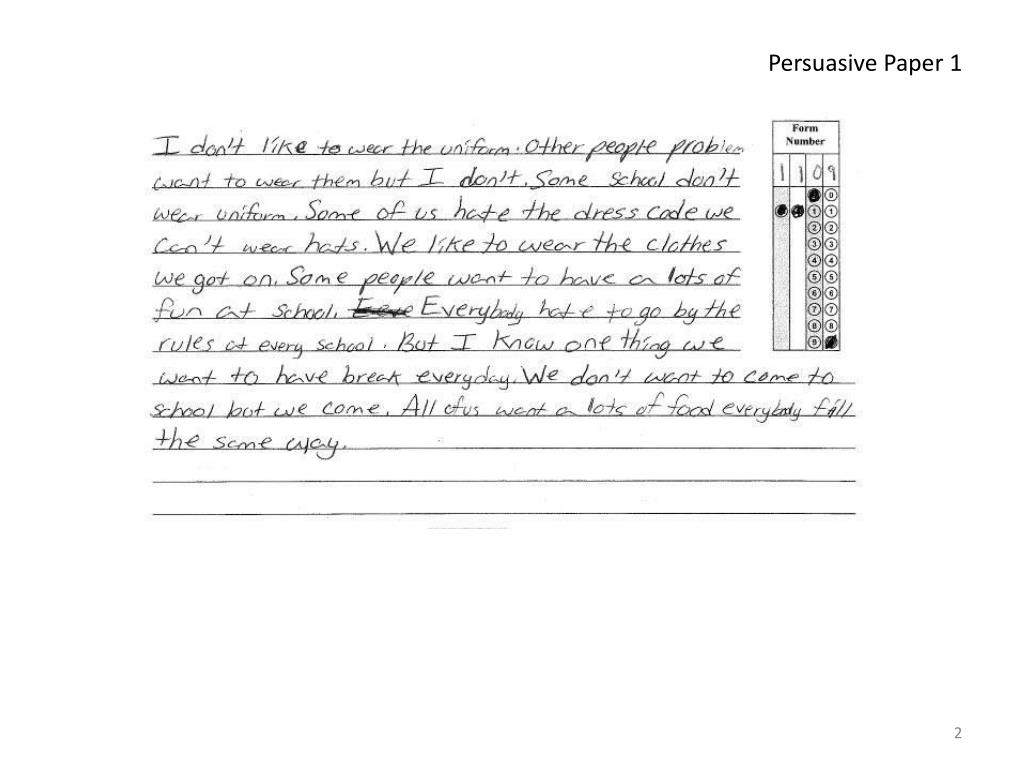 Persuasive Paper 1
I don't like to wear the uniform. Other people problem
want to wear them but I don't. Some school don't
wear uniform. Some of us hate the dress code we
can't wear hats. We like to wear the clothes
we got on. Some people want to have a lots of
fun at school. Everybody hate to go by the
rules at every school. But I know one thing we
want to have break everyday. We don't want to come to
school but we come. All of us want a lots of food everybody fill
the same way.
Form
Number
1 1 0 9
0
1 1
2 2
3 3
4 4
5 5
6 6
7 7
8 8
9
2